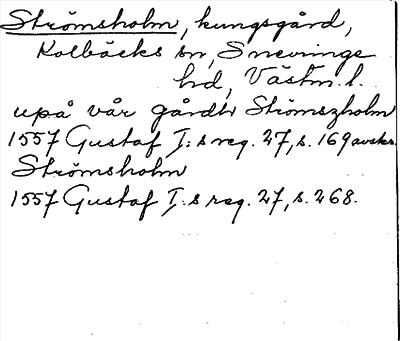 Strömsholm, kungsgård,
Kolbäcks sn, Snevringe
hd, Västm. l.
upå vår gårdh Strömszholm
1557 Gustaf I:s reg. 27, s. 169 avskr.
Strömsholm
1557 Gustaf I:s reg. 27, s. 268.